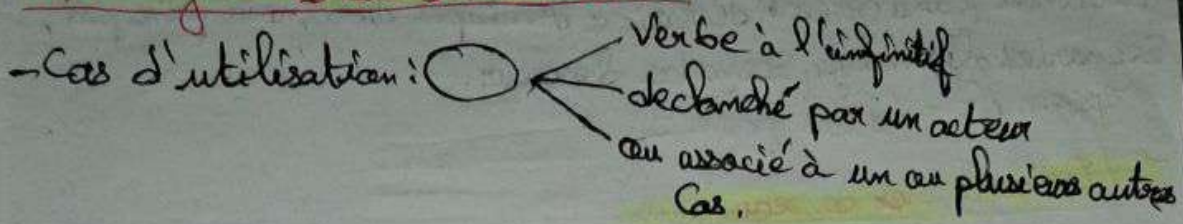 - Cas d'utilisation :
Verbe à l'infinitif
declanché par un acteur
ou associé à un ou plusieurs autres
Cas.